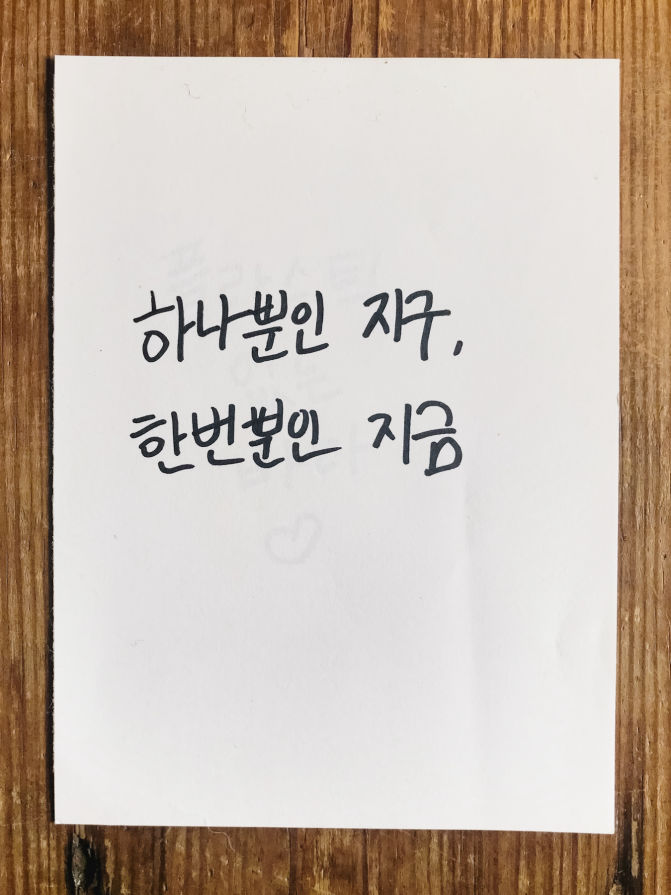 하나뿐인 지구,
한번뿐인 지금